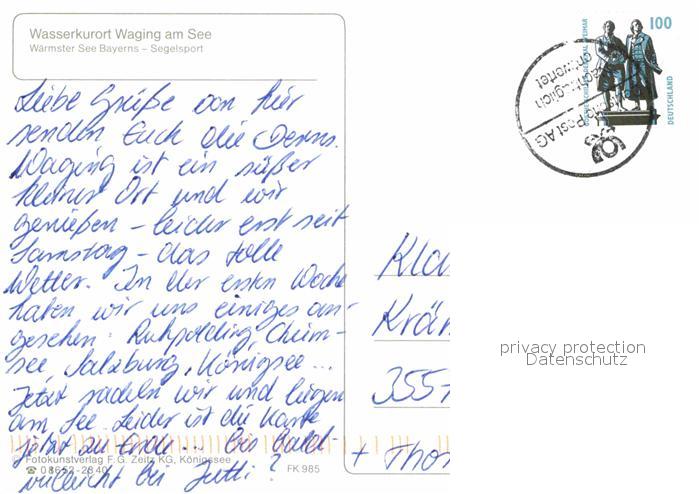 Wasserkurort Waging am See
Wärmster See Bayerns – Segelsport
100
DEUTSCHLAND
Post AG
nachträglich
entwertet
Liebe Grüße von hier
senden Euch die
Waging ist ein süßer
kleiner Ort und wir
genießen – leider erst seit
Samstag – das tolle
Wetter. In der ersten Woche
haben wir uns einiges an-
gesehen: Ruhpolding, Chiem-
see, Salzburg, Königsee ...
Jetzt radeln wir und liegen
am See. Leider ist die Karte
jetzt zu Ende ... bis bald –
vielleicht bei Jutti?
Kla
Krä
355
+ Tho
privacy protection
Datenschutz
© Fotokunstverlag F. G. Zeitz KG, Königssee
☎ 08652-2840
FK 985